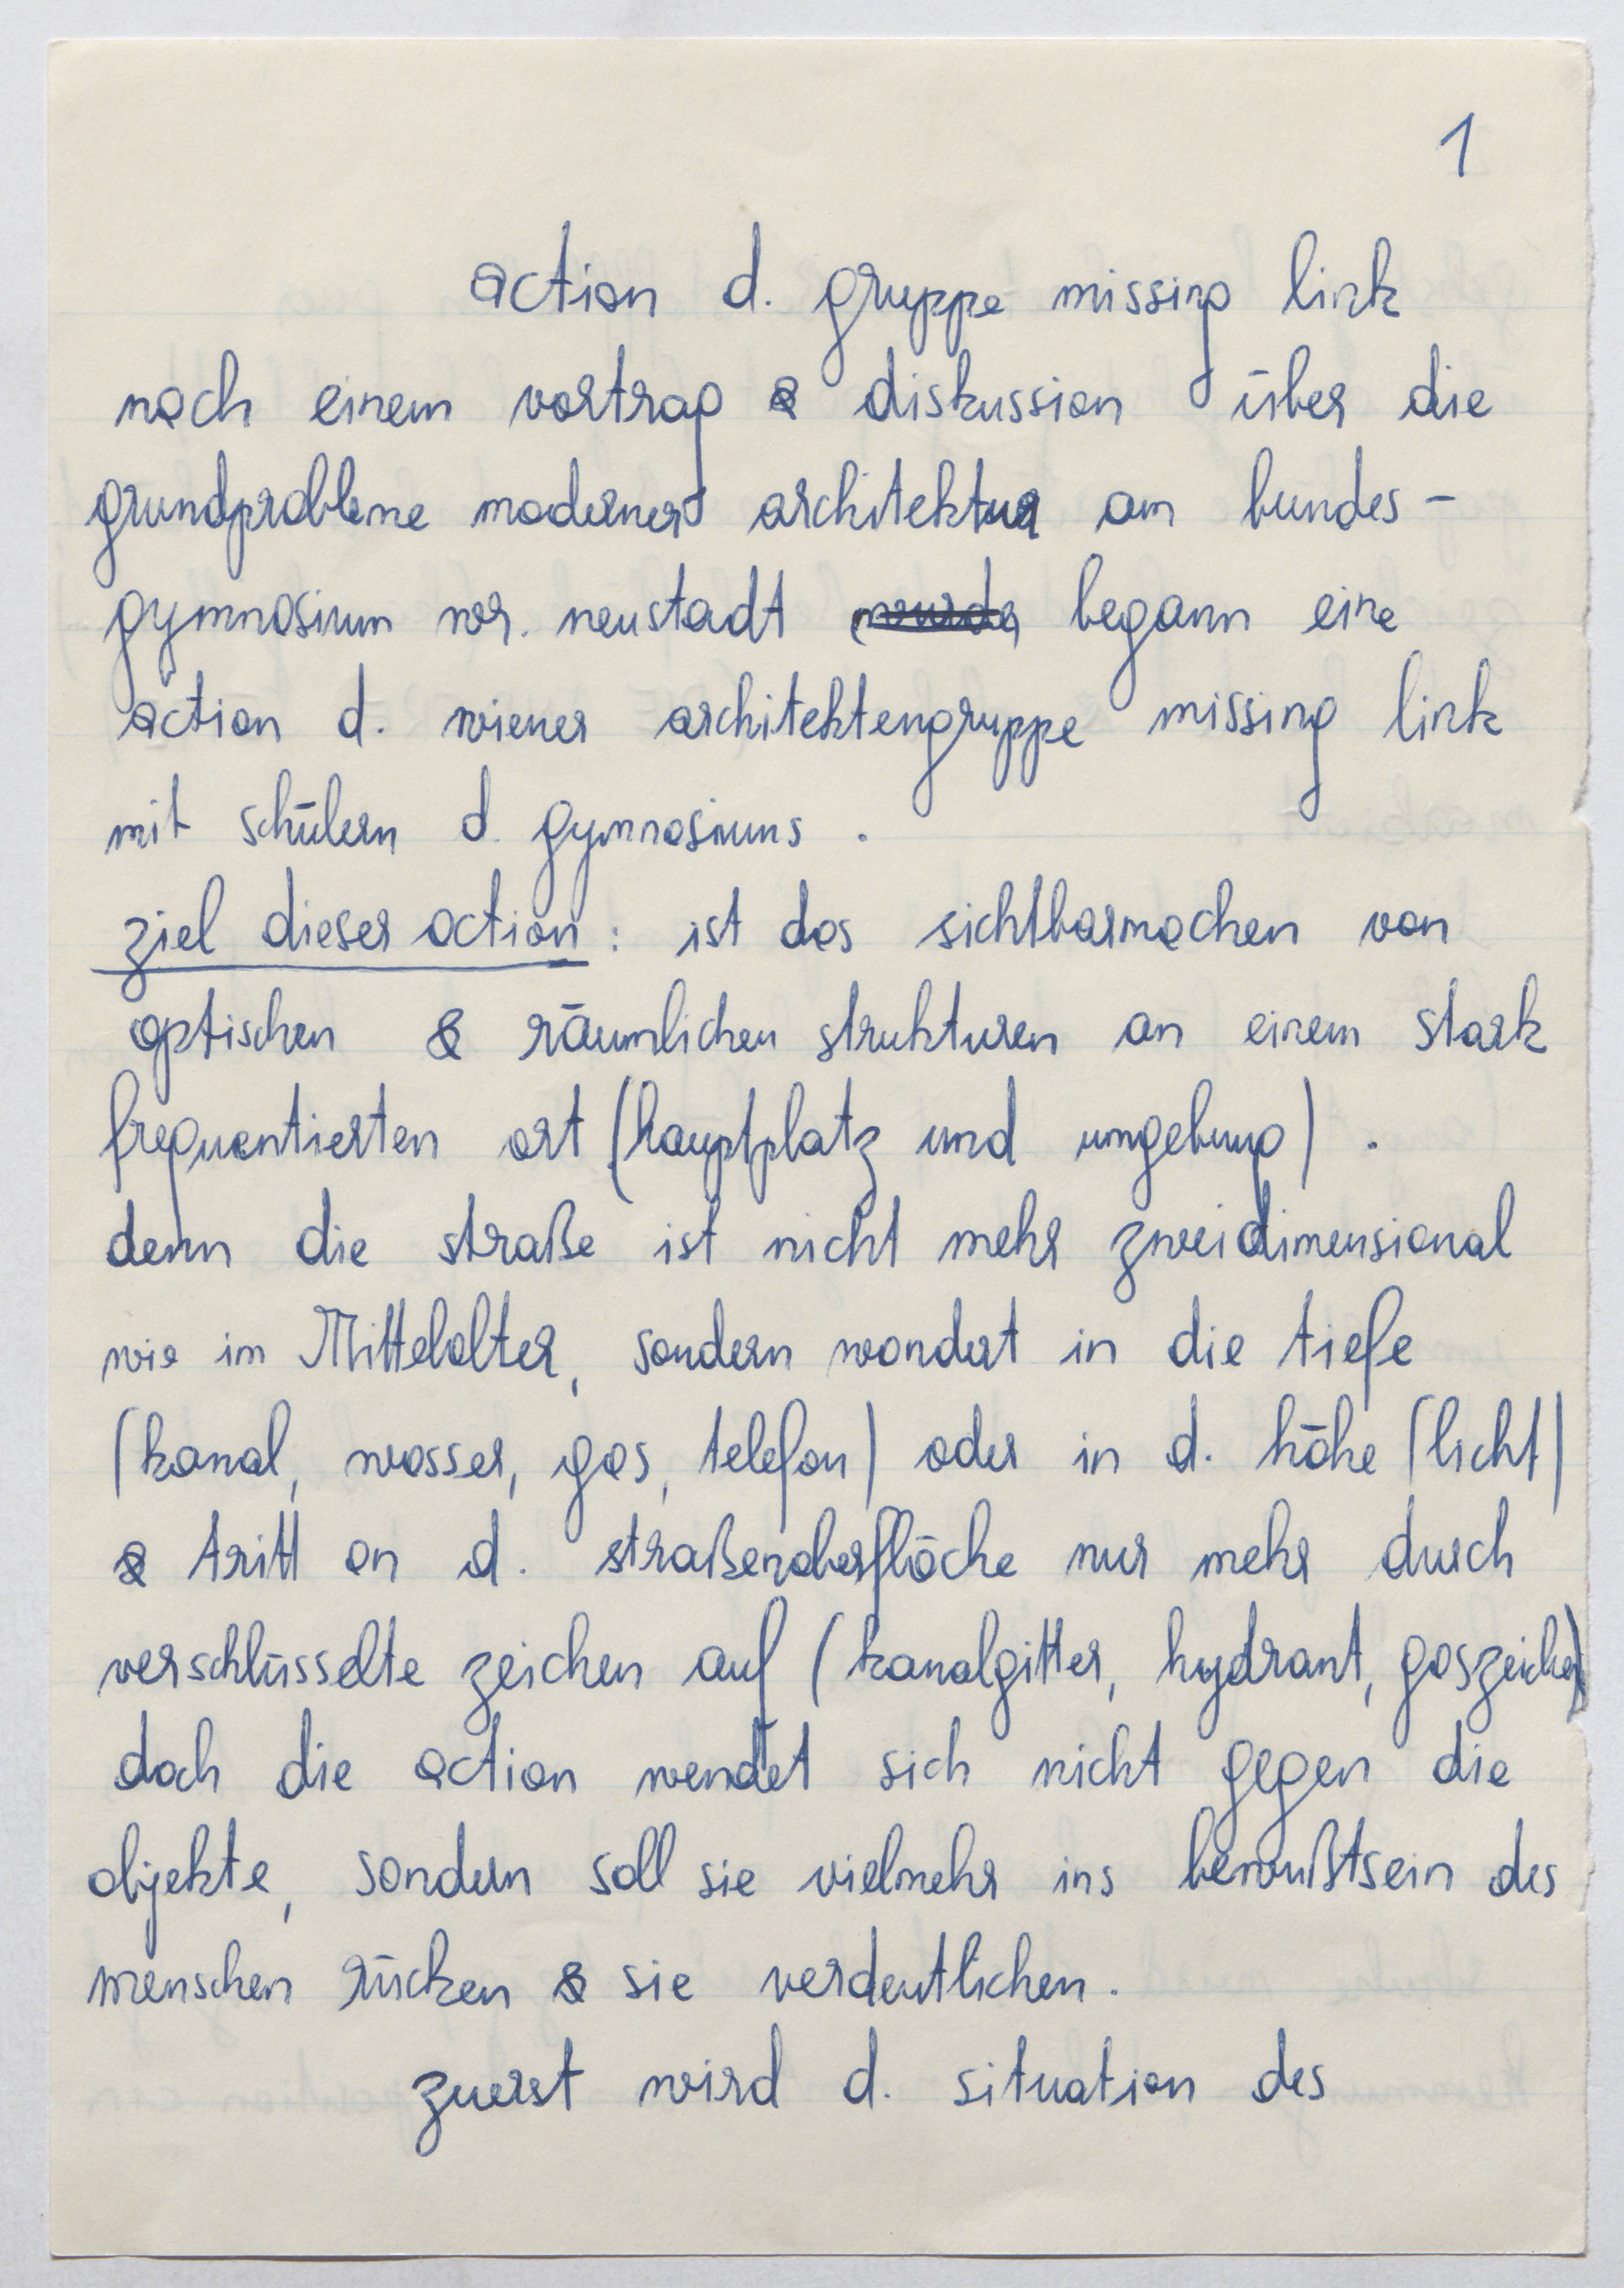 1
action d. gruppe missing link
nach einem vortrag & diskussion über die
grundprobleme moderner architektur am bundes-
gymnasium wr. neustadt wurde begann eine
action d. wiener architektengruppe missing link
mit schülern d. gymnasiums.
ziel dieser action: ist das sichtbarmachen von
optischen & räumlichen strukturen an einem stark
frequentierten ort (hauptplatz und umgebung).
denn die straße ist nicht mehr zweidimensional
wie im Mittelalter, sondern wandert in die tiefe
(kanal, wasser, gas, telefon) oder in d. höhe (licht)
& tritt an d. straßenoberfläche nur mehr durch
verschlüsselte zeichen auf (kanalgitter, hydrant, gaszeichen)
doch die action wendet sich nicht gegen die
objekte, sondern soll sie vielmehr ins bewußtsein des
menschen rücken & sie verdeutlichen.
zuerst wird d. situation des